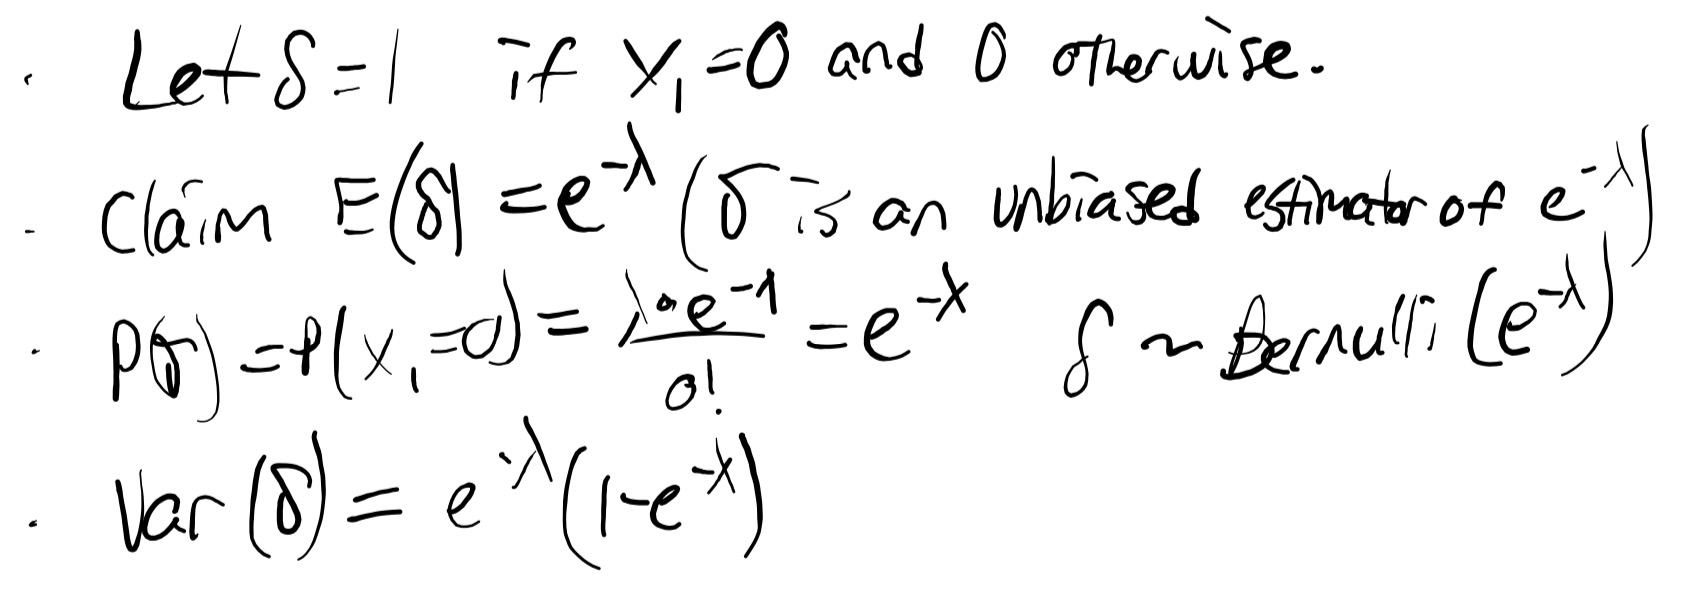 · Let δ = 1 if X₁ = 0 and 0 otherwise.
- Claim E(δ) = e^{-λ} (δ is an unbiased estimator of e^{-λ})
· P(δ) = P(X₁ = 0) = λ⁰e^{-λ}/0! = e^{-λ} δ ~ Bernulli (e^{-λ})
· Var(δ) = e^{-λ}(1-e^{-λ})